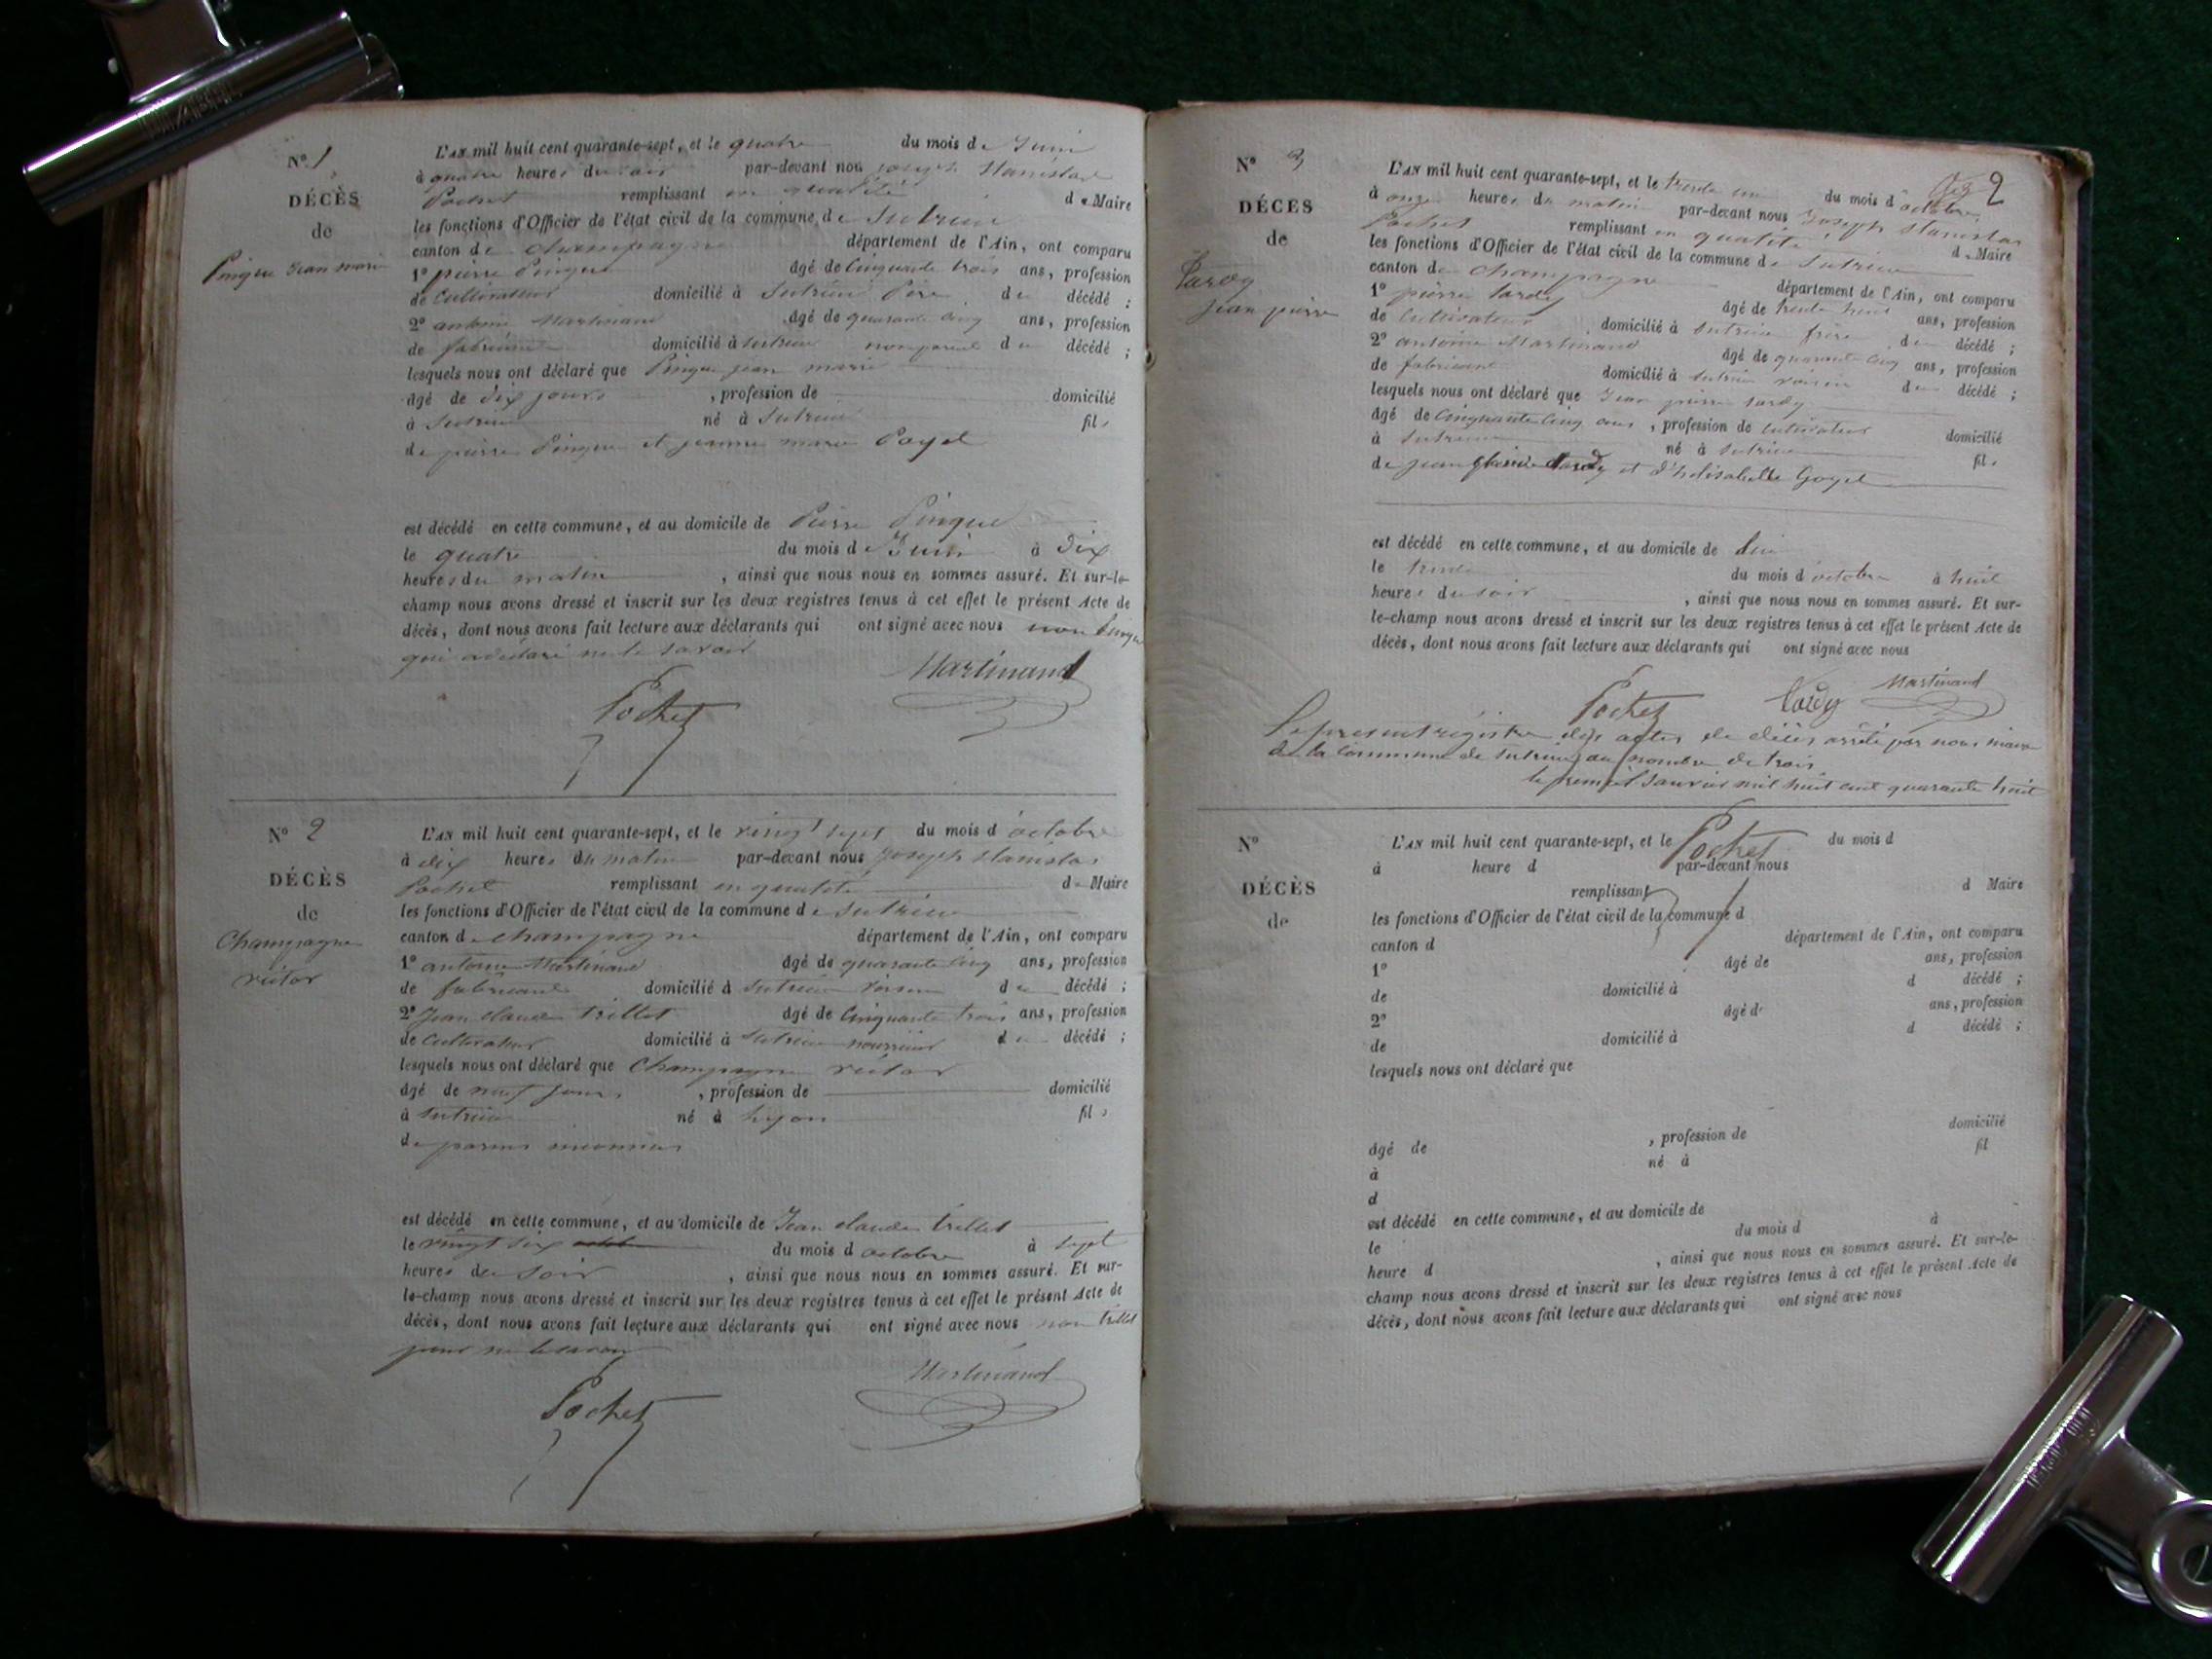 N° 1
DÉCÈS
de
Pingue Jean marie
L'AN mil huit cent quarante-sept, et le quatre du mois de Juin
à quatre heures du soir par-devant nous joseph Stanislas
Pochet remplissant en qualité de Maire
les fonctions d'Officier de l'état civil de la commune de Sutrieu
canton de champagne département de l'Ain, ont comparu
1° pierre Pingue âgé de Cinquante trois ans, profession
de Cultivateur domicilié à Sutrieu Père du décédé ;
2° antoine Martinand âgé de quarante cinq ans, profession
de fabricant domicilié à Sutrieu non parent du décédé ;
lesquels nous ont déclaré que Pingue jean marie
âgé de dix jours , profession de domicilié
à Sutrieu né à Sutrieu fils
de pierre Pingue et jeanne marie
est décédé en cette commune, et au domicile de Pierre Pingue
le quatre du mois de Juin à dix
heures du matin , ainsi que nous nous en sommes assuré. Et sur-le-
champ nous avons dressé et inscrit sur les deux registres tenus à cet effet le présent Acte de
décès, dont nous avons fait lecture aux déclarants qui ont signé avec nous non Pingue
qui a déclaré ne le savoir
Martinand
Pochet
N° 2
DÉCÈS
de
Champagne
victor
L'AN mil huit cent quarante-sept, et le vingt sept du mois d'octobre
à dix heures du matin par-devant nous joseph stanislas
Pochet remplissant en qualité de Maire
les fonctions d'Officier de l'état civil de la commune de Sutrieu
canton de champagne département de l'Ain, ont comparu
1° antoine Martinand âgé de quarante cinq ans, profession
de fabricant domicilié à Sutrieu voisin du décédé ;
2° Jean claude trillet âgé de Cinquante trois ans, profession
de Cultivateur domicilié à Sutrieu nourricier du décédé ;
lesquels nous ont déclaré que Champagne victor
âgé de neuf jours , profession de domicilié
à Sutrieu né à Lyon fils
de parens inconnus
est décédé en cette commune, et au domicile de Jean claude trillet
le vingt six du mois d octobre à sept
heures du soir , ainsi que nous nous en sommes assuré. Et sur-
le-champ nous avons dressé et inscrit sur les deux registres tenus à cet effet le présent Acte de
décès, dont nous avons fait lecture aux déclarants qui ont signé avec nous non trillet
pour ne le savoir
Martinand
Pochet
2
N° 3
DÉCÈS
de
Tardy
jean pierre
L'AN mil huit cent quarante-sept, et le trente un du mois d'octobre
à onze heures du matin par-devant nous Joseph stanislas
Pochet remplissant en qualité de Maire
les fonctions d'Officier de l'état civil de la commune de Sutrieu
canton de champagne département de l'Ain, ont comparu
1° pierre tardy âgé de trente huit ans, profession
de Cultivateur domicilié à Sutrieu frère du décédé ;
2° antoine Martinand âgé de quarante cinq ans, profession
de fabricant domicilié à Sutrieu voisin du décédé ;
lesquels nous ont déclaré que Jean pierre tardy
âgé de Cinquante Cinq ans , profession de Cultivateur domicilié
à Sutrieu né à Sutrieu fils
de jean tardy et d'hélisabelle Goyet
est décédé en cette commune, et au domicile de lui
le trente du mois d'octobre à huit
heures du soir , ainsi que nous nous en sommes assuré. Et sur-
le-champ nous avons dressé et inscrit sur les deux registres tenus à cet effet le présent Acte de
décès, dont nous avons fait lecture aux déclarants qui ont signé avec nous
Pochet Tardy Martinand
Le present régistre des actes de décès arrêté par nous maire
de la Commune de Sutrieu au nombre de trois
le premier Janvier mil huit cent quarante huit
Pochet
N°
DÉCÈS
de
L'AN mil huit cent quarante-sept, et le du mois d
à heure d par-devant nous
remplissant d Maire
les fonctions d'Officier de l'état civil de la commune d
canton d département de l'Ain, ont comparu
1° âgé de ans, profession
de domicilié à d décédé ;
2° âgé de ans, profession
de domicilié à d décédé ;
lesquels nous ont déclaré que
âgé de , profession de domicilié
à né à fil
d
est décédé en cette commune, et au domicile de
le du mois d à
heure d , ainsi que nous nous en sommes assuré. Et sur-le-
champ nous avons dressé et inscrit sur les deux registres tenus à cet effet le présent Acte de
décès, dont nous avons fait lecture aux déclarants qui ont signé avec nous